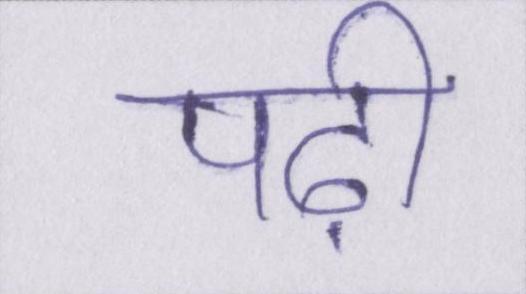 पढ़ीं